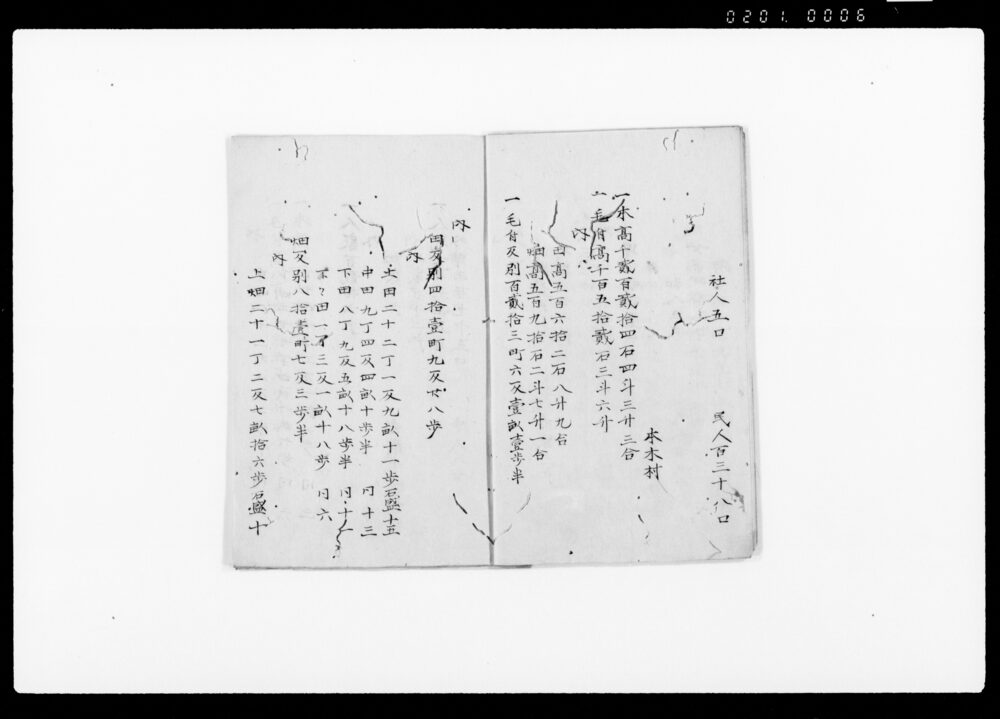 0201.0006
社人五口　民人百三十八口
本木村
一本高千貳百貳拾四石四斗三升三合
一毛付高千百五拾貳石三斗六升
内
田高五百六拾二石八升九合
畑高五百九拾石二斗七升一合
一毛付反別百貳拾三町六反壹畝壹歩半
内
田反別四拾壹町九反廿八歩
内
上田二十二丁一反九畝十一歩石盛十五
中田九丁四反四畝十歩半　同十三
下田八丁九反五畝十八歩半　同十一
下々田一丁三反一畝十八歩　同六
畑反別八拾壹町七反三歩半
内
上畑二十一丁二反七畝拾六歩石盛十